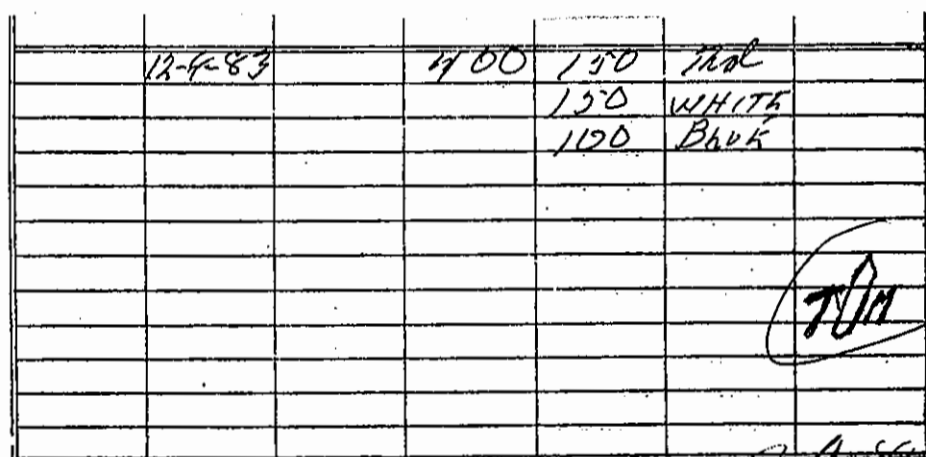 12-4-83 400 150 Red
150 WHITE
100 BLUE
TOM